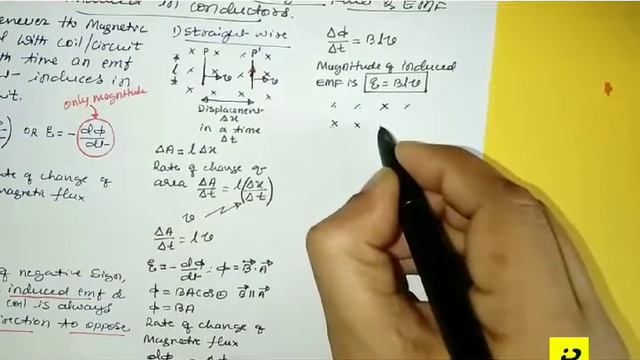 conductors.
& EMF
enever the Magnetic
d with coil/circuit
th time an emf
induces in
uit.
only magnitude
OR ε = - dφ/dt
ate of change of
magnetic flux
of negative Sign,
induced emf &
coil is always
irection to oppose
1) straight wire
x x P x P' x
l x x v x v
x x x x
Displacement
Δx
in a time
Δt
ΔA = l Δx
Rate of change of
area ΔA/Δt = l(Δx/Δt)
v
ΔA/Δt = l v
ε = - dφ/dt ∴ φ = B⃗.A⃗
φ = BA cos θ B⃗ ∥ A⃗
φ = BA
Rate of change of
Magnetic flux
dφ
Δφ/Δt = B l v
Magnitude of induced
EMF is ε = Blv
x x x x
x x